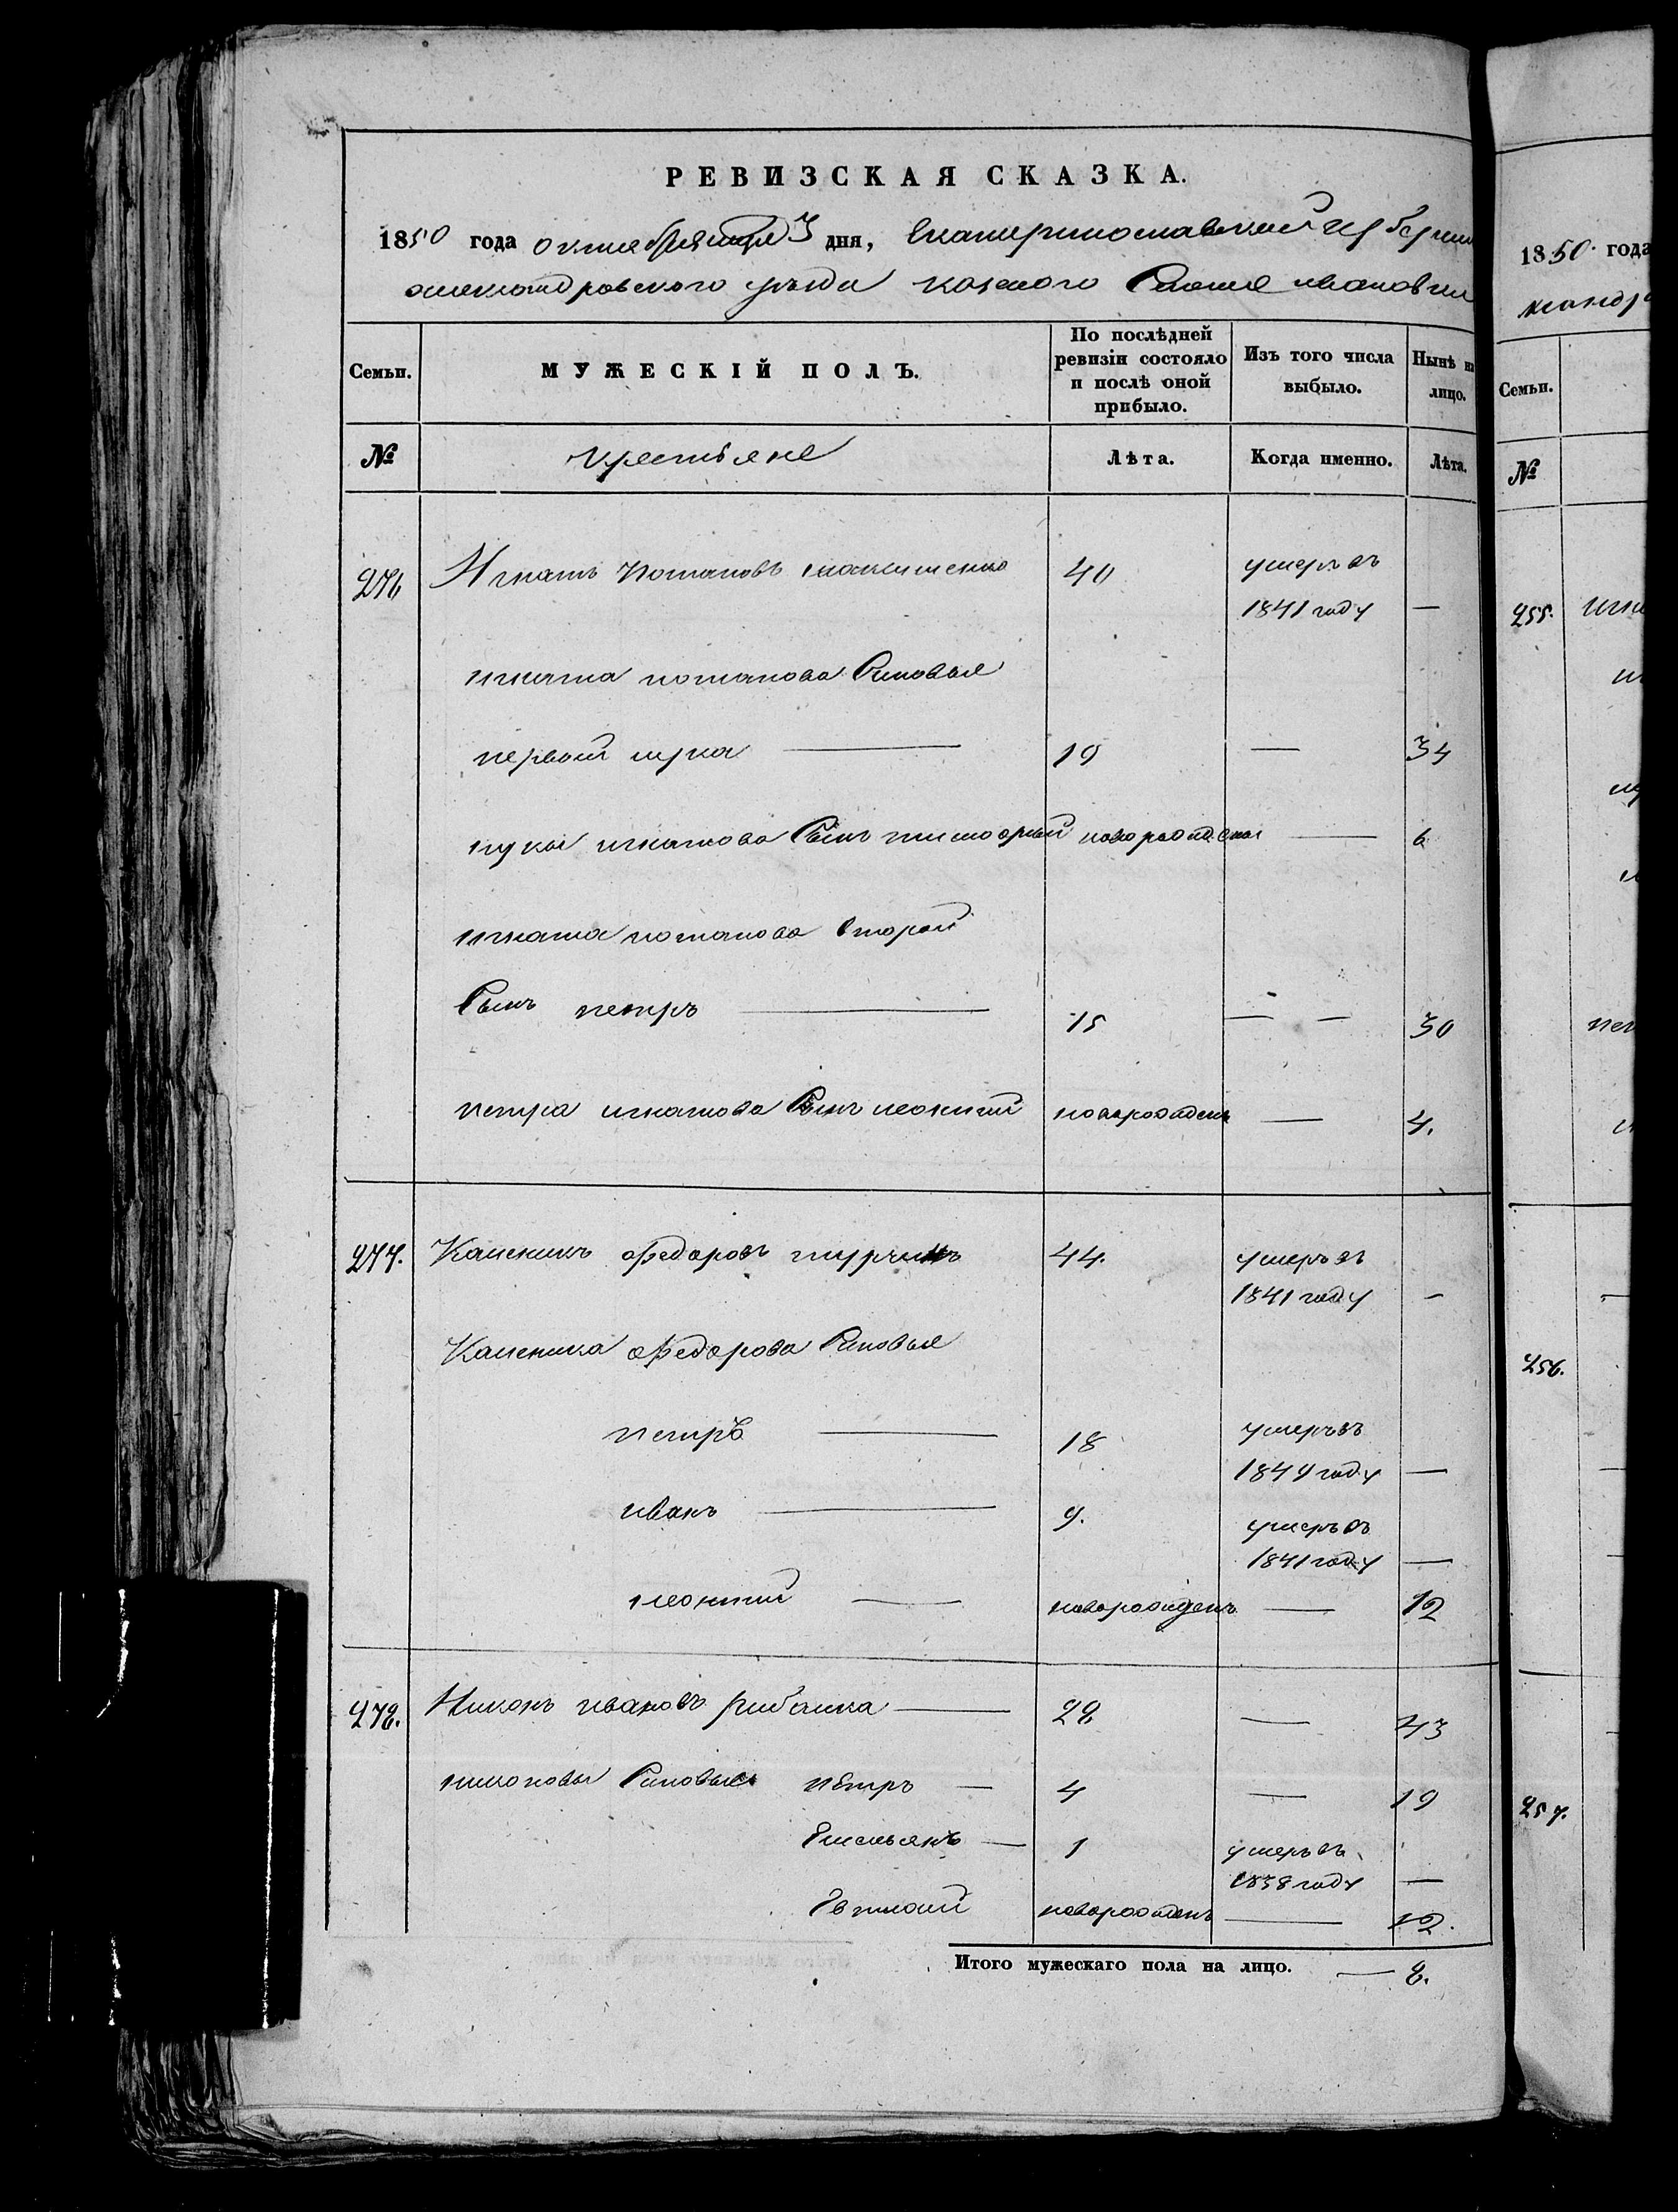 РЕВИЗСКАЯ СКАЗКА.
1850 года октября 3 дня, Екатеринославской губернии
александровского уезда казеного Ивановки
Семьи. МУЖЕСКІЙ ПОЛЪ. По послѣдней ревизіи состояло и послѣ оной прибыло. Изъ того числа выбыло. Нынѣ на лицо.
№ крестьяне Лѣта. Когда именно. Лѣта.
276 Игнатъ Потаповъ 40 умеръ въ
1841 году —
игната потапова Синовья
первой лука — 19 — 34
луки игнатова Сынъ тимофей новорожденъ — 6
игната потапова второй
Сынъ петръ — 15 — — 30
петра игнатова Сынъ леонтий новорожденъ — 4.
277. Каленикъ федоровъ турчинъ 44. умеръ въ
1841 году —
Каленика федорова Синовья
петръ — 18 умеръ въ
1849 году —
иванъ — 9. умеръ въ
1841 году —
леонтий — новорожденъ — 12
278. Никонъ ивановъ рибалка — 28 — 43
никоновы Синовья петръ — 4 — 19
Емельянъ — 1 умеръ въ
1838 году —
Евтихий новорожденъ — 12.
Итого мужескаго пола на лицо. — 8.
1850 года
Семьи.
№
255.
256.
257.